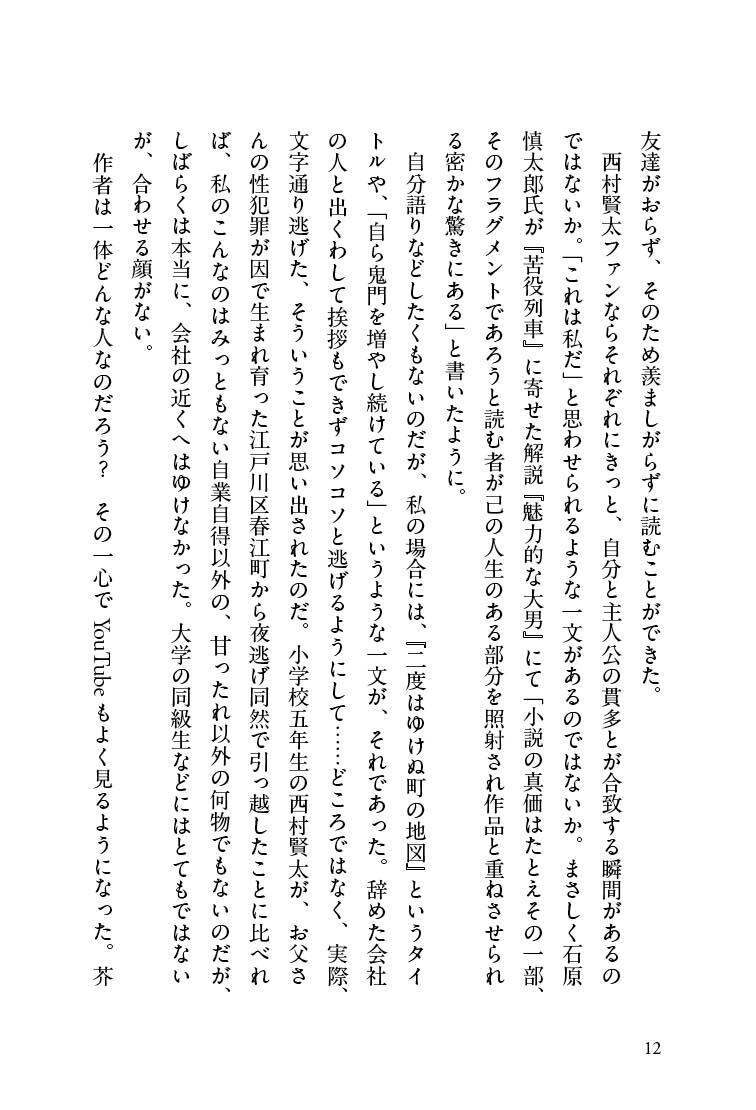 友達がおらず、そのため羨ましがらずに読むことができた。
　西村賢太ファンならそれぞれにきっと、自分と主人公の貫多とが合致する瞬間があるの
ではないか。「これは私だ」と思わせられるような一文があるのではないか。まさしく石原
慎太郎氏が『苦役列車』に寄せた解説『魅力的な大男』にて「小説の真価はたとえその一部、
そのフラグメントであろうと読む者が己の人生のある部分を照射され作品と重ねさせられ
る密かな驚きにある」と書いたように。
　自分語りなどしたくもないのだが、私の場合には、『二度はゆけぬ町の地図』というタイ
トルや、「自ら鬼門を増やし続けている」というような一文が、それであった。辞めた会社
の人と出くわして挨拶もできずコソコソと逃げるようにして……どころではなく、実際、
文字通り逃げた、そういうことが思い出されたのだ。小学校五年生の西村賢太が、お父さ
んの性犯罪が因で生まれ育った江戸川区春江町から夜逃げ同然で引っ越したことに比べれ
ば、私のこんなのはみっともない自業自得以外の、甘ったれ以外の何物でもないのだが、
しばらくは本当に、会社の近くへはゆけなかった。大学の同級生などにはとてもではない
が、合わせる顔がない。
　作者は一体どんな人なのだろう？　その一心で YouTube もよく見るようになった。芥
12